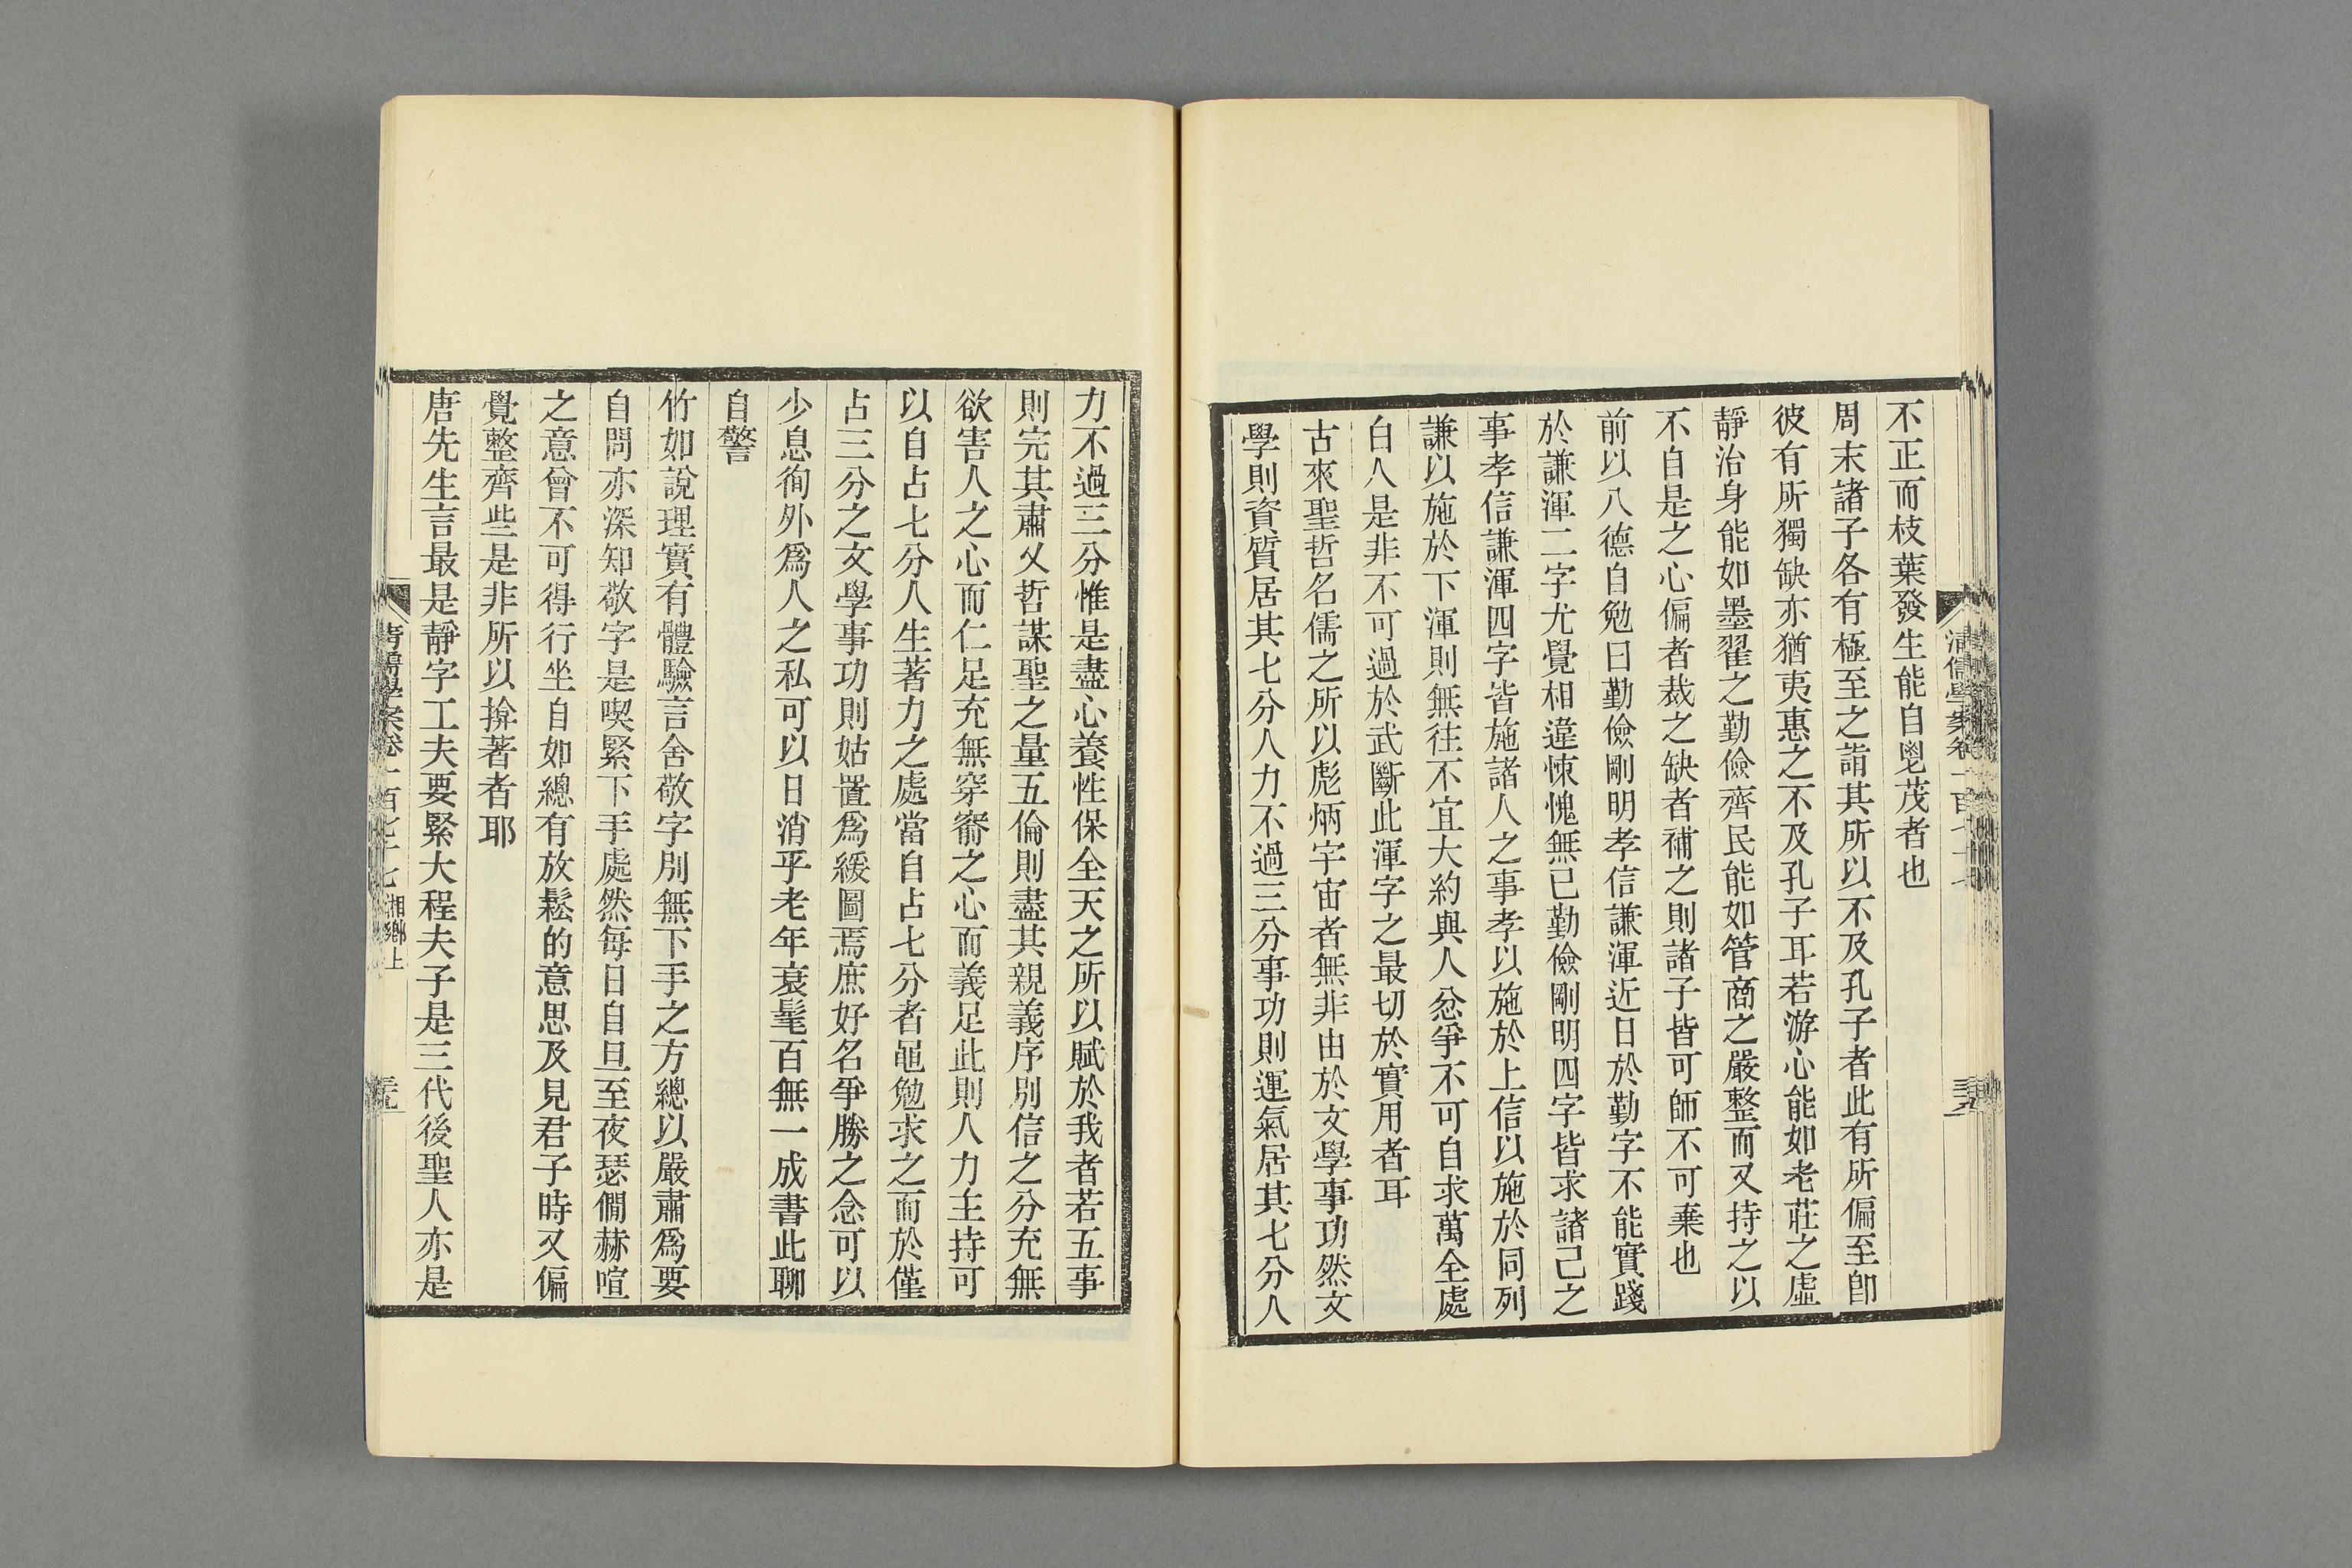 不正而枝葉發生能自鬯茂者也
周末諸子各有極至之詣其所以不及孔子者此有所偏至卽
彼有所獨缺亦猶夷惠之不及孔子耳若游心能如老莊之虛
靜治身能如墨翟之勤儉齊民能如管商之嚴整而又持之以
不自是之心偏者裁之缺者補之則諸子皆可師不可棄也
前以八德自勉曰勤儉剛明孝信謙渾近日於勤字不能實踐
於謙渾二字尤覺相違悚愧無已勤儉剛明四字皆求諸己之
事孝信謙渾四字皆施諸人之事孝以施於上信以施於同列
謙以施於下渾則無往不宜大約與人忿爭不可自求萬全處
白人是非不可過於武斷此渾字之最切於實用者耳
古來聖哲名儒之所以彪炳宇宙者無非由於文學事功然文
學則資質居其七分人力不過三分事功則運氣居其七分人
力不過三分惟是盡心養性保全天之所以賦於我者若五事
則完其肅乂哲謀聖之量五倫則盡其親義序別信之分充無
欲害人之心而仁足充無穿窬之心而義足此則人力主持可
以自占七分人生著力之處當自占七分者黽勉求之而於僅
占三分之文學事功則姑置爲緩圖焉庶好名爭勝之念可以
少息徇外爲人之私可以日消乎老年衰髦百無一成書此聊
自警
竹如說理實有體驗言舍敬字別無下手之方總以嚴肅爲要
自問亦深知敬字是喫緊下手處然每日自旦至夜瑟僩赫喧
之意曾不可得行坐自如總有放鬆的意思及見君子時又偏
覺整齊些是非所以揜著者耶
唐先生言最是靜字工夫要緊大程夫子是三代後聖人亦是
清儒學案卷一百七十七 湘鄉上